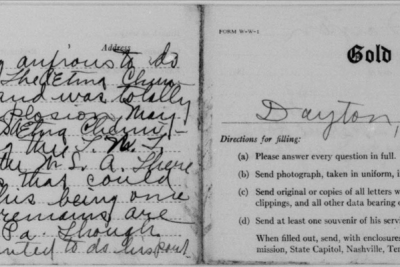 Address
anxious to do
The Etna Chem
and was totally
plosion, May
Etna Chemi-
of the T.N.T.
the U.S.A. There
that could
his being one
remains are
Pa. Though
wanted to do his part
FORM W-W-1
Gold
Dayton,
Directions for filling:
(a) Please answer every question in full.
(b) Send photograph, taken in uniform, i
(c) Send original or copies of all letters w
clippings, and all other data bearing o
(d) Send at least one souvenir of his servi
When filled out, send, with enclosures
mission, State Capitol, Nashville, Ten